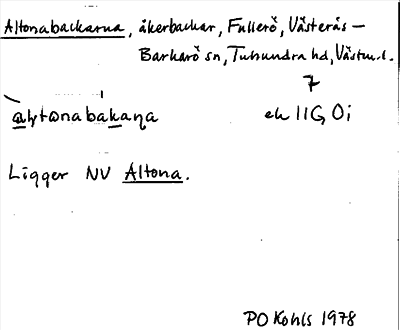 Altonabackarna, åkerbackar, Fullerö, Västerås –
Barkarö sn, Tuhundra hd, Västm.l.
7
ek 11G, 0i
Ligger NV Altona.
PO Kohls 1978